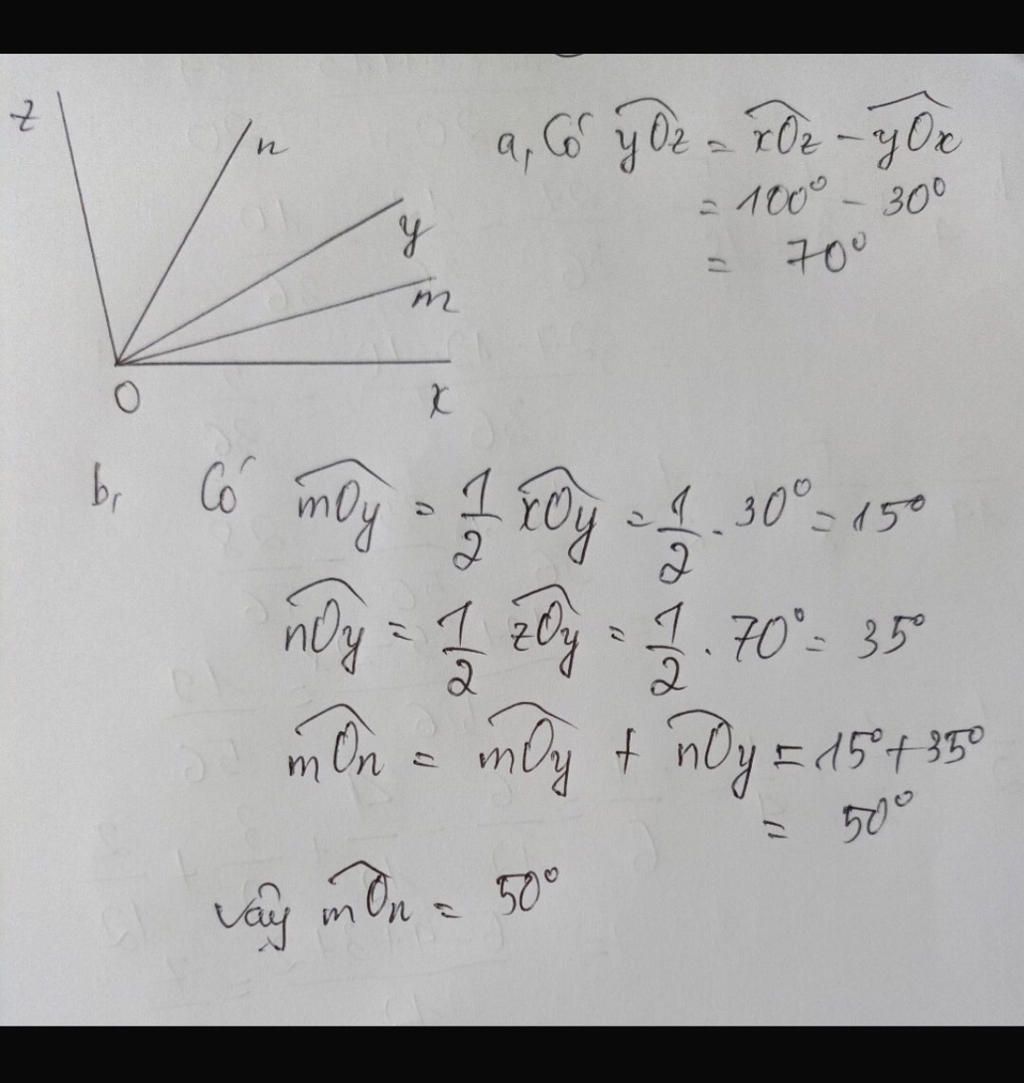 z
n
y
m
O
x
a, Có yOz = xOz - yOx
= 100° - 30°
= 70°
b, Có mOy = 1/2 xOy = 1/2 . 30° = 15°
nOy = 1/2 zOy = 1/2 . 70° = 35°
mOn = mOy + nOy = 15° + 35°
= 50°
Vậy mOn = 50°